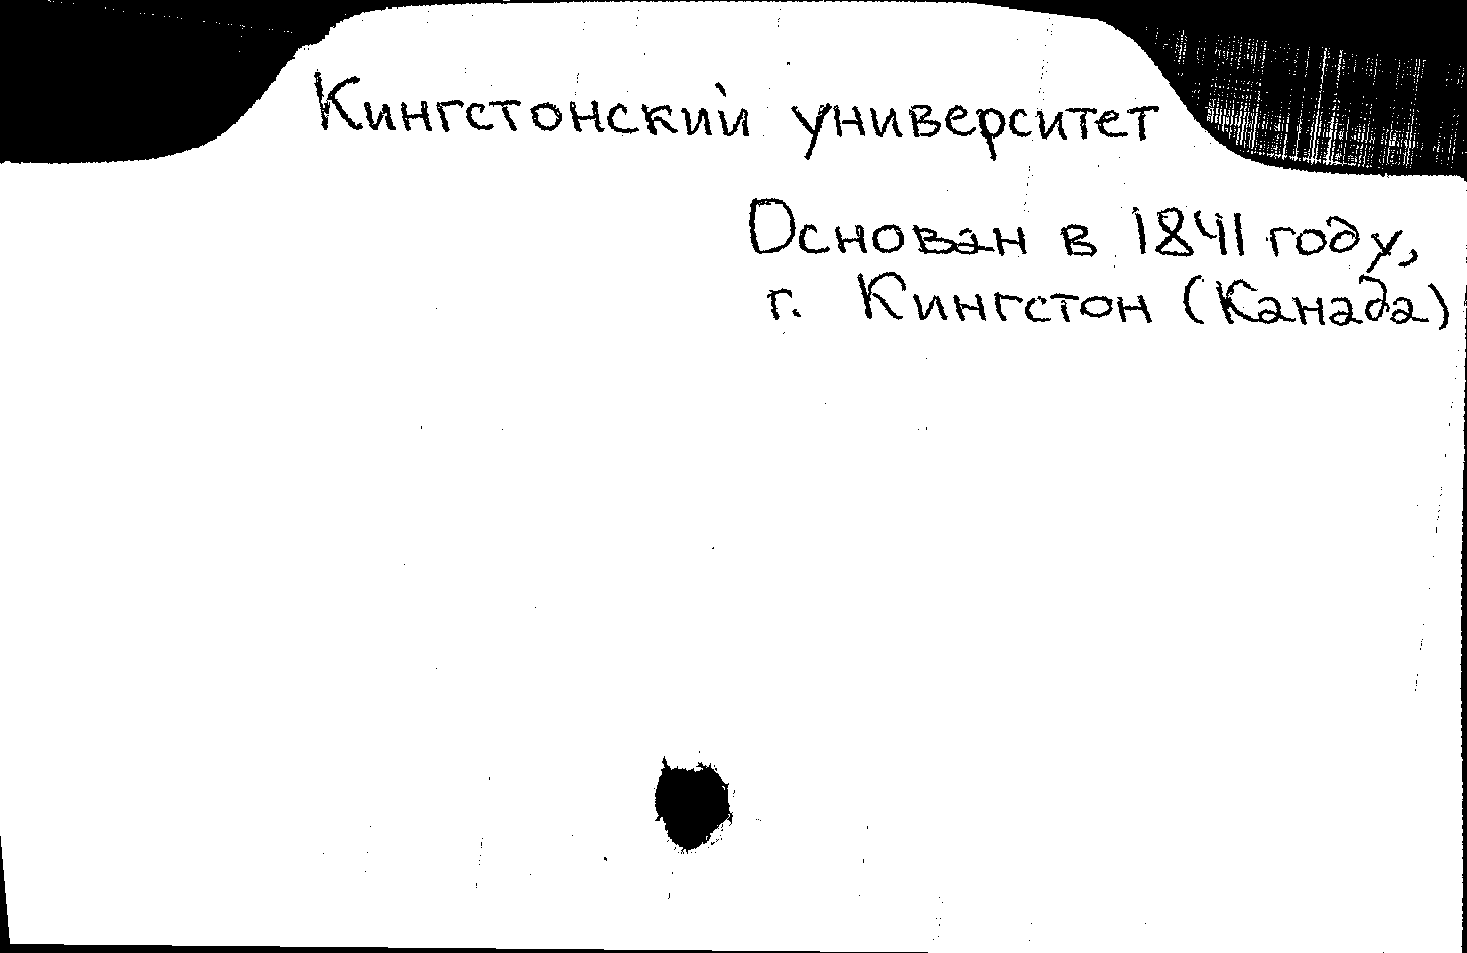 Кингстонский университет
Основан в 1841 году,
г. Кингстон (Канада)